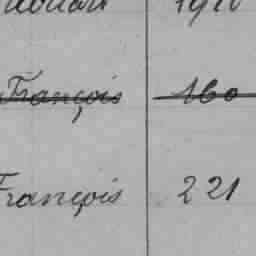 François 160
François 221